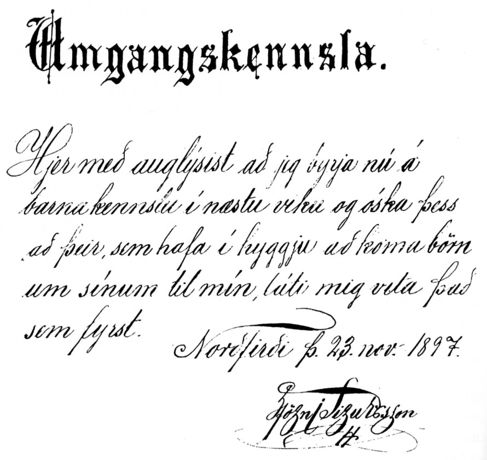 Umgangskennsla.
Hjer með auglýsist að jeg byrja nú á
barnakennslu í næstu viku og óska þess
að þeir, sem hafa í hyggju að koma börn
um sínum til mín, láti mig vita það
sem fyrst.
Norðfirði þ. 23. nov. 1897.